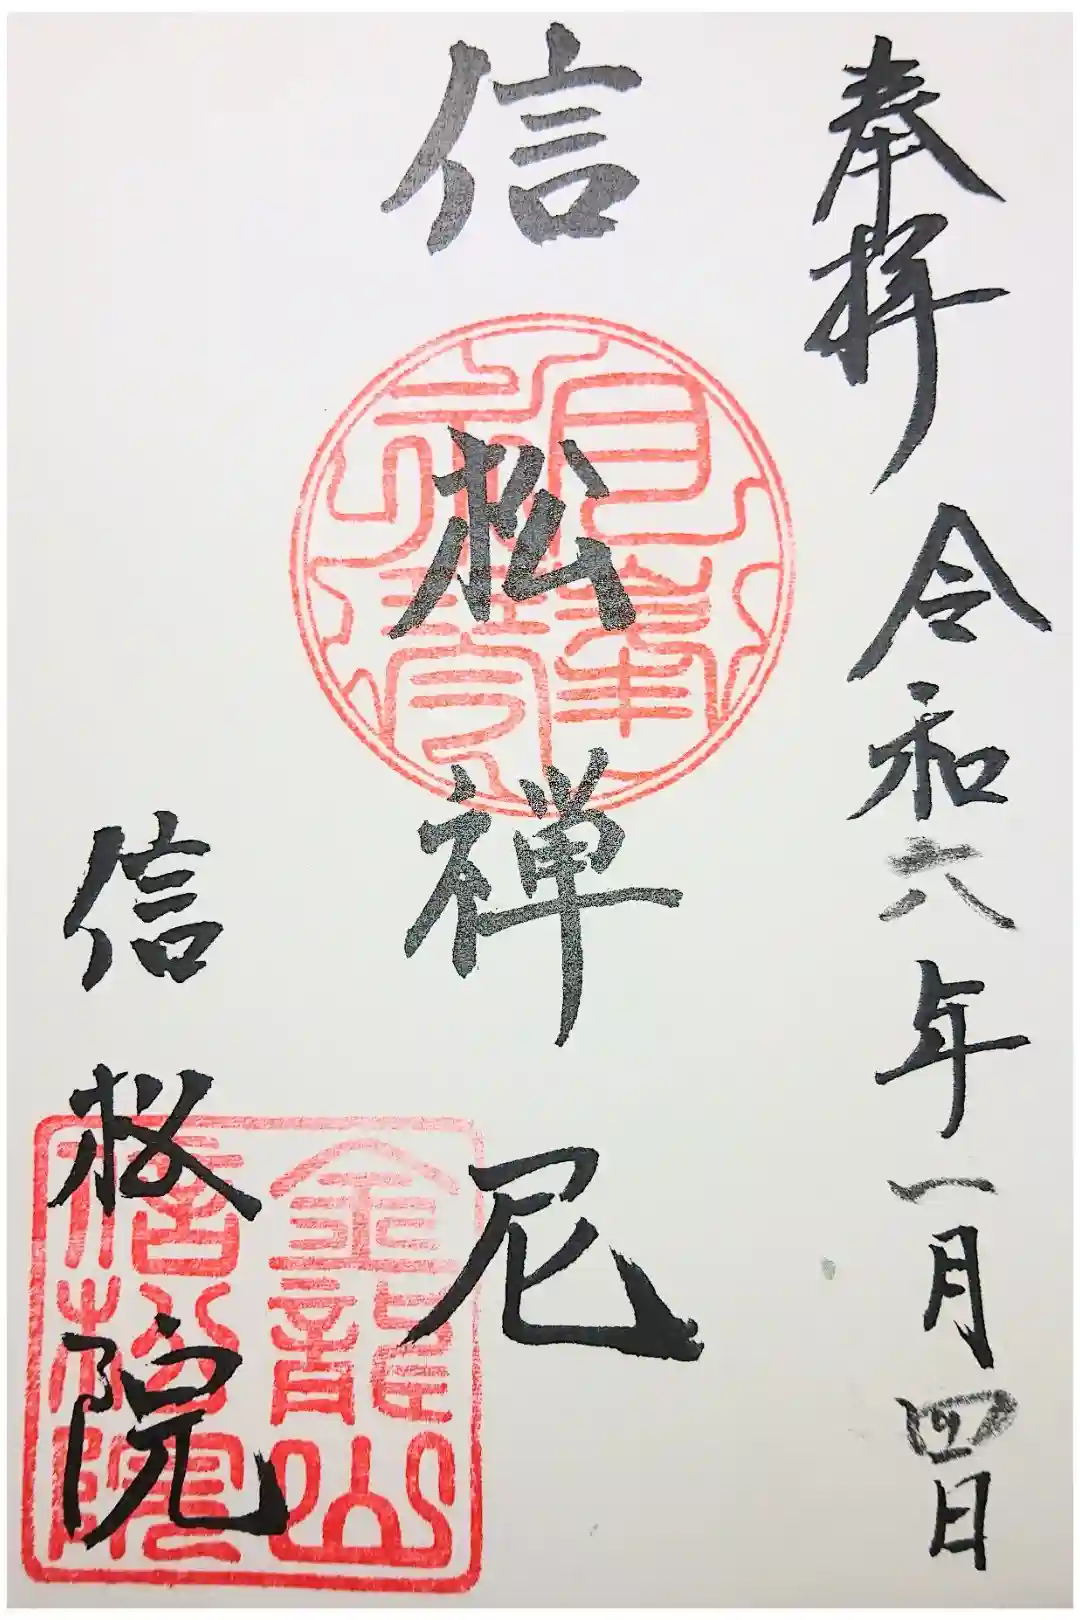 奉拝 令和六年一月四日
信松禅尼
信松院
金龍山
信松院